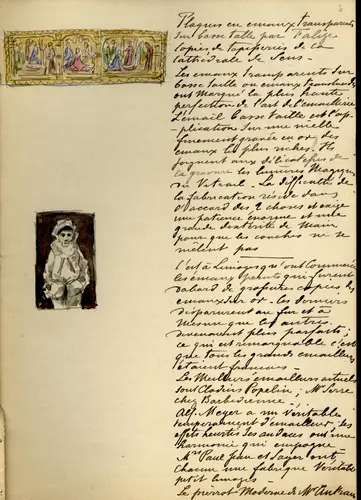 Plaques en émaux transparents
sur basse taille par Falize
copies de tapisseries de la
cathédrale de Sens -
Les émaux transparents sur
basse taille ou émaux translucides
ont marqué la plus haute
perfection de l'art de l'émaillerie
L'émail basse taille est l'ap-
plication sur une
finement gravée en or des
émaux les plus riches. Ils
joignent aux délicatesses de
la gravure les lumières magiques
du vitrail - La difficulté de
la fabrication réside dans
l'accord des 2 choses et exige
une patience énorme et une
grande dextérité de main
pour que les couches ne se
mêlent pas
C'est à Limoges qu'ont commencé
les émaux peints qui furent
d'abord de grossières copies des
émaux sur or - les derniers
disparurent au fur et à
mesure que les autres
devenaient plus parfaits;
ce qui est remarquable c'est
que tous les grands émailleurs
étaient français -
Les meilleurs émailleurs actuels
sont Claudius Popelin; Mr Serre
chez Barbedienne -
Alf. Meyer a un véritable
tempérament d'émailleur; ses
effets heurtés ses audaces ont une
harmonie qui empoigne
Mrs Paul et ont
chacun une fabrique véritable
petit Limoges -
Le pierrot Moderne de Mr